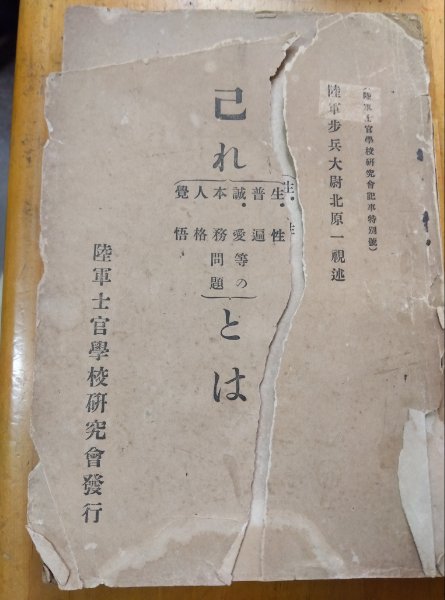 (陸軍士官學校研究會記事特別號)
陸軍步兵大尉北原一視述
己れ
生・性
普遍
誠・愛等の
本務問題
人格
覺悟
とは
陸軍士官學校研究會發行